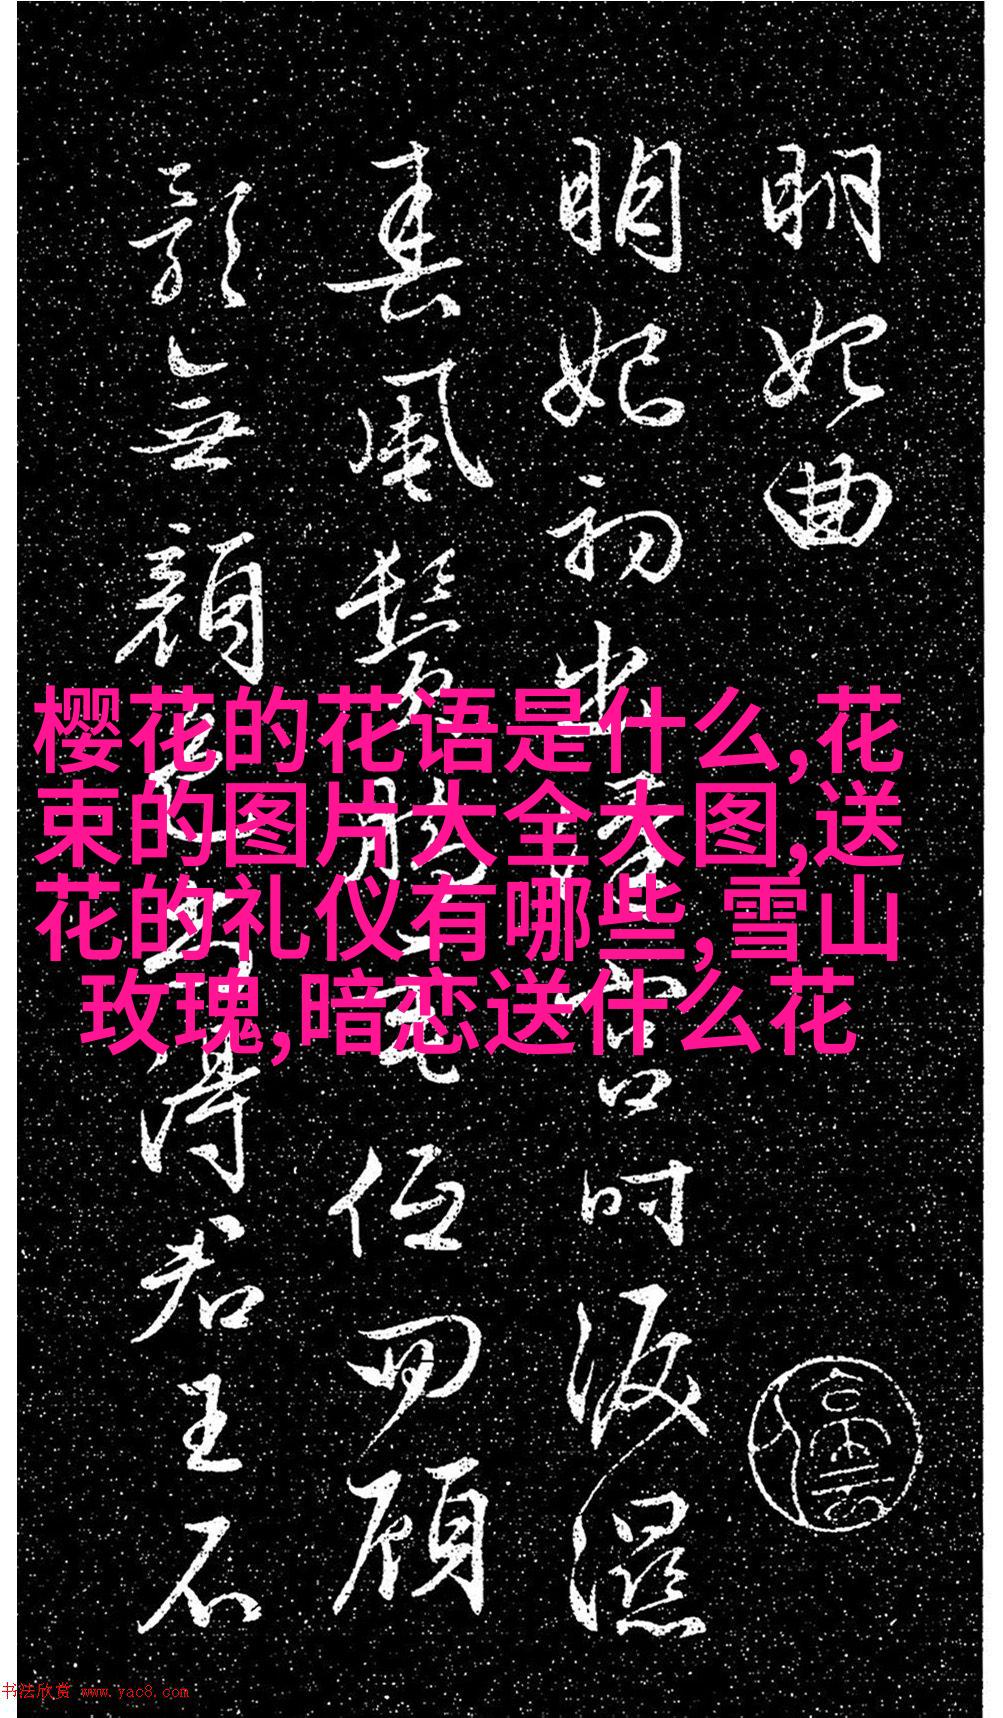 明妃曲
明妃初出漢宮時淚濕
春風鬢腳垂低回顧
影無顏色尚得君王不
樱花的花语是什么,花
束的图片大全大图,送
花的礼仪有哪些,雪山
玫瑰,暗恋送什么花
书法欣赏 www.yac8.com